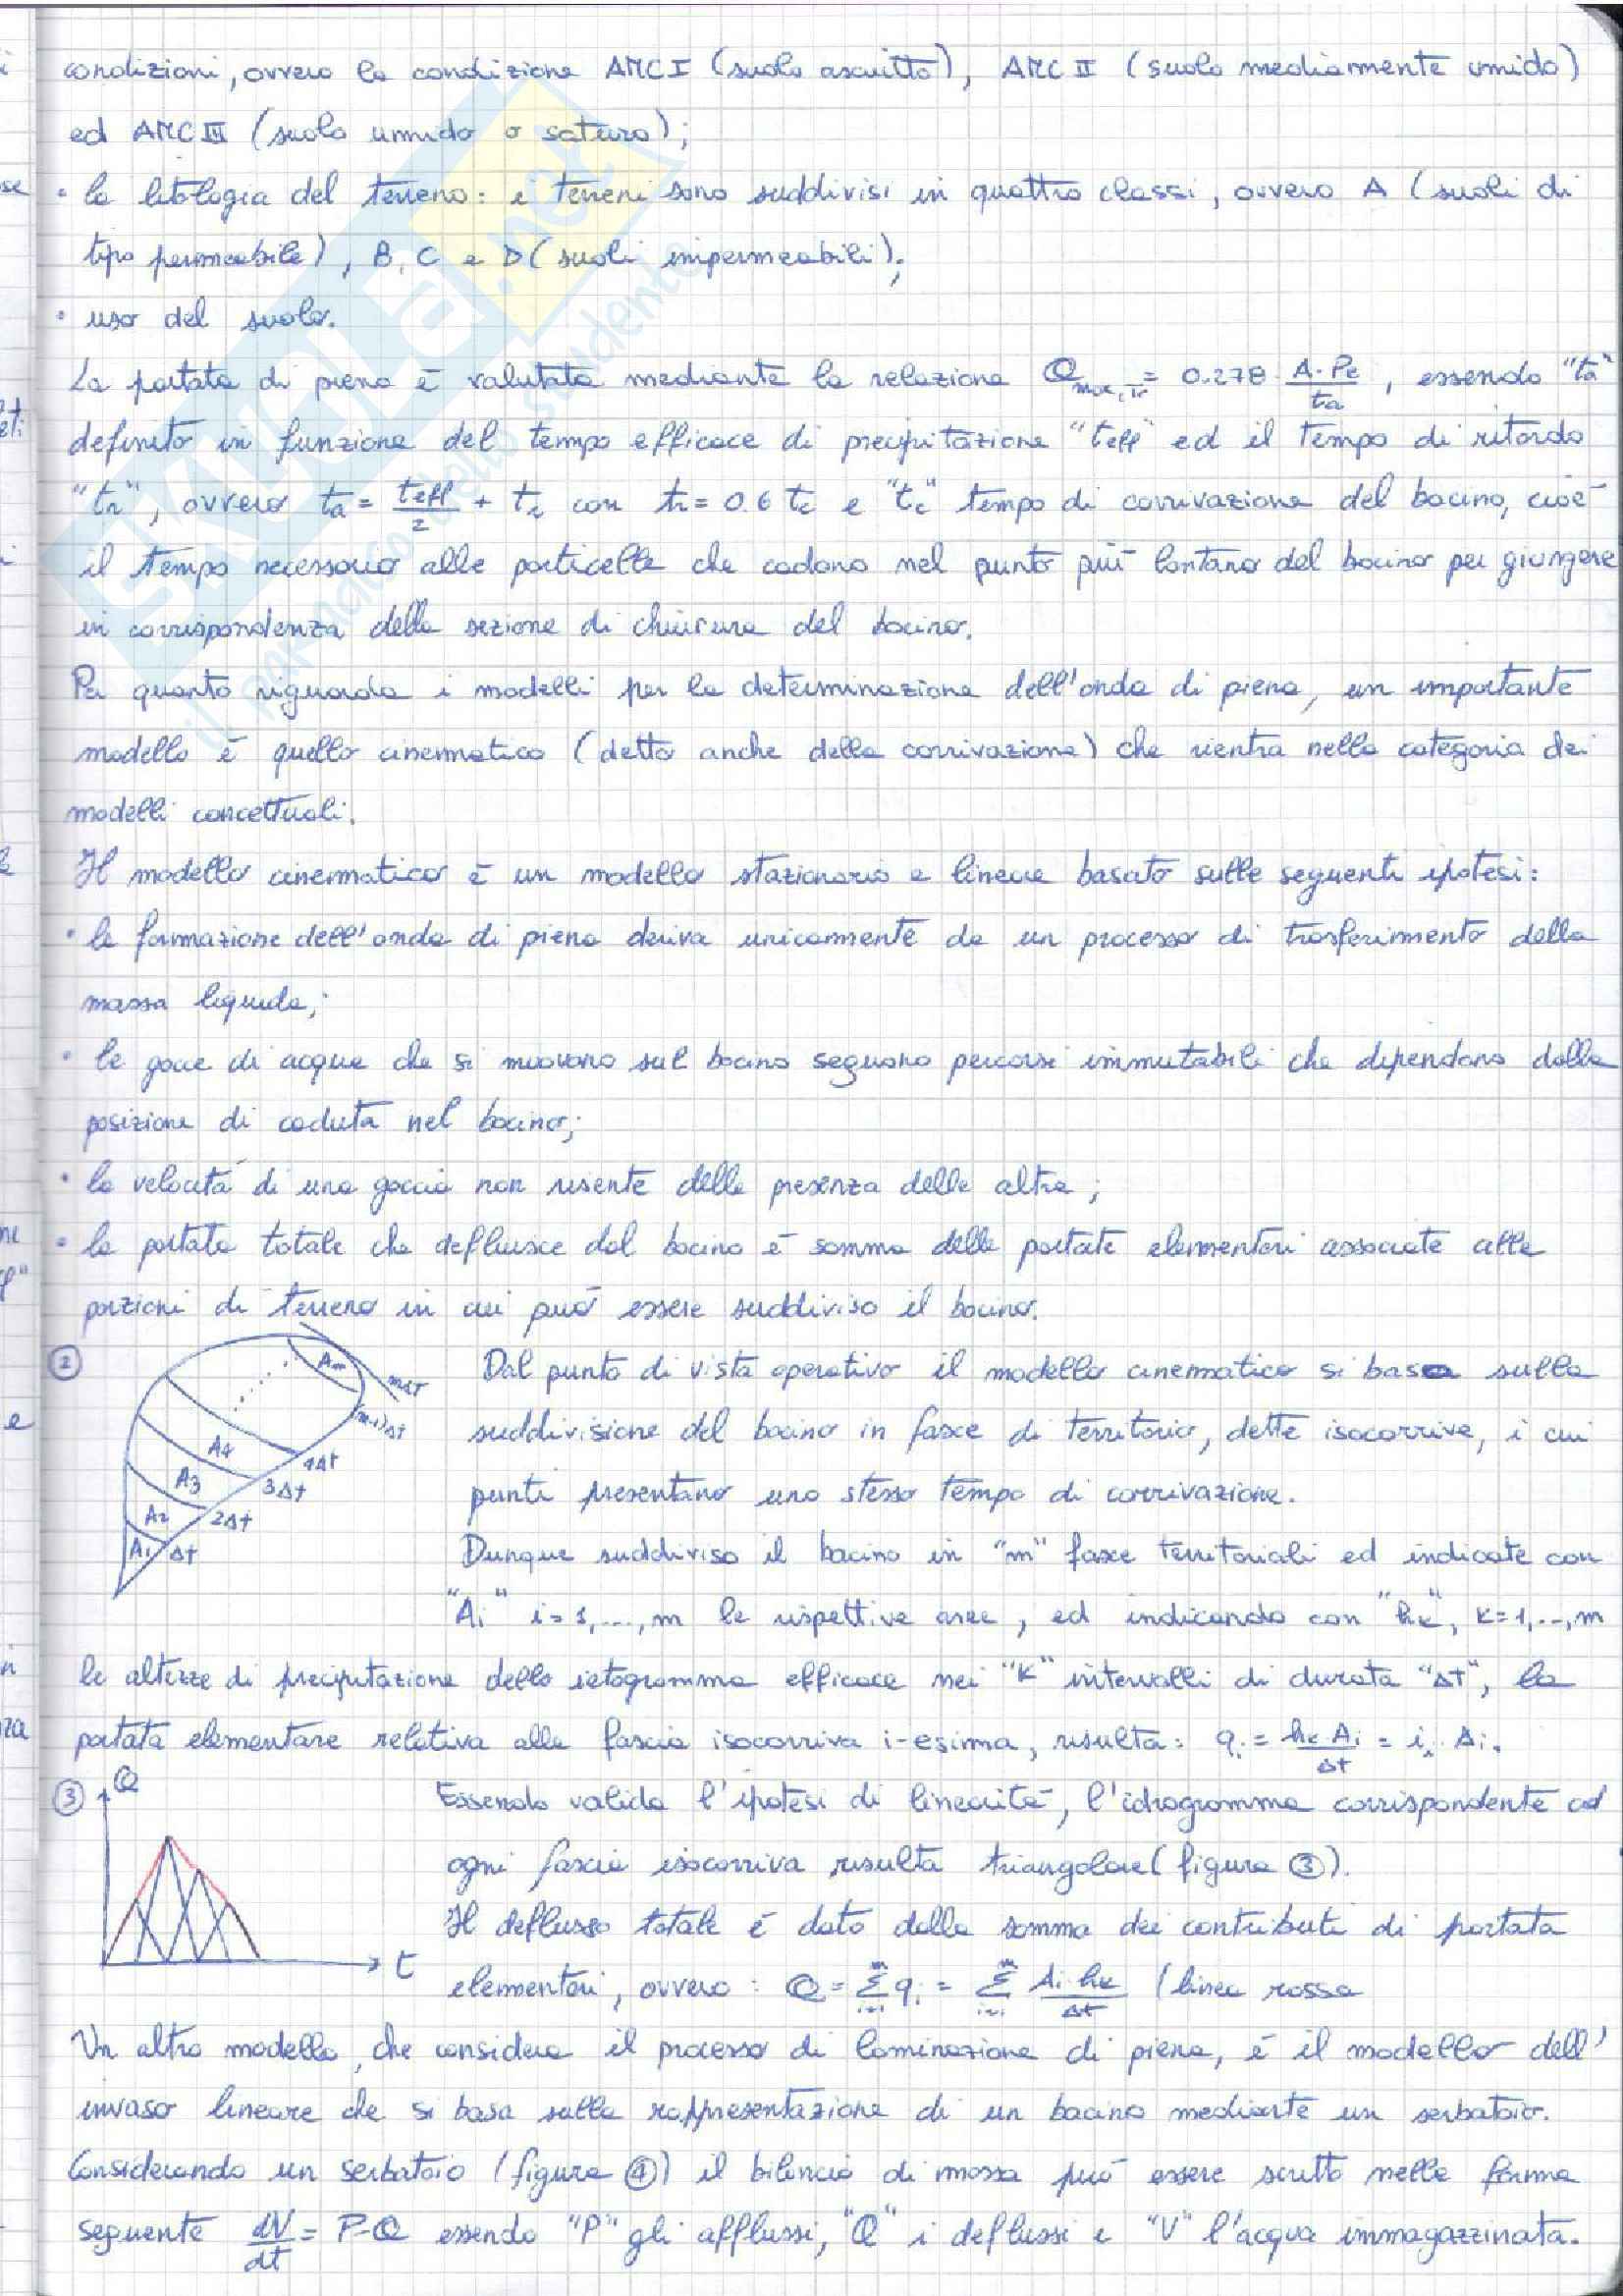 condizioni, ovvero la condizione AMC I (suolo asciutto), AMC II (suolo mediamente umido)
ed AMC III (suolo umido o saturo);
• la litologia del terreno: i terreni sono suddivisi in quattro classi, ovvero A (suoli di
tipo permeabile), B, C e D (suoli impermeabili);
• uso del suolo.
La portata di piena è valutata mediante la relazione Qmax,Tr = 0.278 · A·Pe / ta , essendo "ta"
definito in funzione del tempo efficace di precipitazione "teff" ed il tempo di ritardo
"tr", ovvero ta = teff/2 + tr con tr = 0.6 tc e "tc" tempo di corrivazione del bacino, cioè
il tempo necessario alle particelle che cadono nel punto più lontano del bacino per giungere
in corrispondenza della sezione di chiusura del bacino.
Per quanto riguarda i modelli per la determinazione dell'onda di piena, un importante
modello è quello cinematico (detto anche della corrivazione) che rientra nella categoria dei
modelli concettuali.
Il modello cinematico è un modello stazionario e lineare basato sulle seguenti ipotesi:
• la formazione dell'onda di piena deriva unicamente da un processo di trasferimento della
massa liquida;
• le gocce di acqua che si muovono sul bacino seguono percorsi immutabili che dipendono dalla
posizione di caduta nel bacino;
• la velocità di una goccia non risente della presenza delle altre;
• la portata totale che defluisce dal bacino è somma delle portate elementari associate alle
porzioni di terreno in cui può essere suddiviso il bacino.
② Dal punto di vista operativo il modello cinematico si basa sulla
suddivisione del bacino in fasce di territorio, dette isocorrive, i cui
punti presentano uno stesso tempo di corrivazione.
Am
mΔt
(m-1)Δt
A4
4Δt
A3
3Δt
A2
2Δt
A1
Δt
Dunque suddiviso il bacino in "m" fasce territoriali ed indicate con
"Ai" i=1,...,m le rispettive aree, ed indicando con "hk", k=1,..,m
le altezze di precipitazione dello ietogramma efficace nei "k" intervalli di durata "Δt", la
portata elementare relativa alla fascia isocorriva i-esima, risulta: qi = hk·Ai / Δt = i · Ai.
③ Q
t
Essendo valida l'ipotesi di linearità, l'idrogramma corrispondente ad
ogni fascia isocorriva risulta triangolare (figura ③).
Il deflusso totale è dato dalla somma dei contributi di portata
elementari, ovvero: Q = Σ qi = Σ Ai hk / Δt (linea rossa
Un altro modello, che considera il processo di laminazione di piena, è il modello dell'
invaso lineare che si basa sulla rappresentazione di un bacino mediante un serbatoio.
Considerando un serbatoio (figura ④) il bilancio di massa può essere scritto nella forma
seguente dV/dt = P-Q essendo "P" gli afflussi, "Q" i deflussi e "V" l'acqua immagazzinata.
SKUOLA.net
il paradiso dello studente